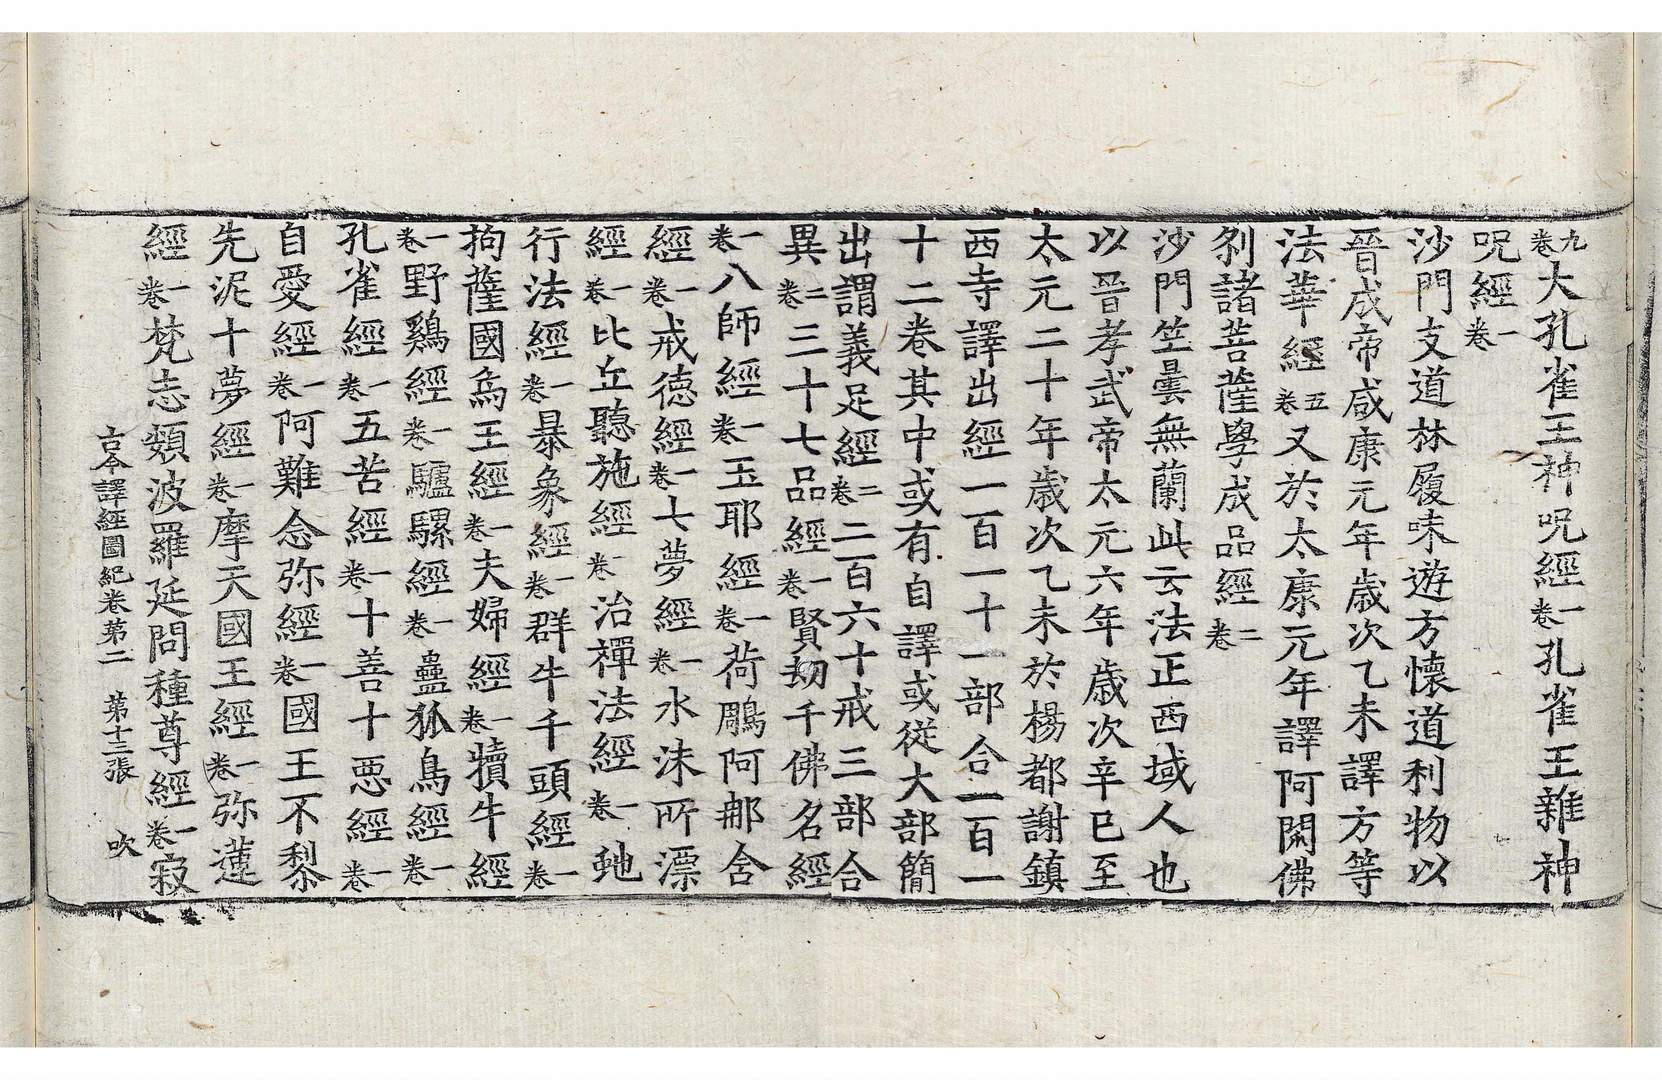 九卷大孔雀王神呪經一卷孔雀王雜神
呪經一卷
沙門支道林履味遊方懷道利物以
晉成帝咸康元年歲次乙未譯方等
法華經五卷又於太康元年譯阿閦佛
刹諸菩薩學成品經二卷
沙門竺曇無蘭此云法正西域人也
以晉孝武帝太元六年歲次辛巳至
太元二十年歲次乙未於楊都謝鎮
西寺譯出經一百一十一部合一百一
十二卷其中或有自譯或從大部簡
出謂義足經二卷二百六十戒三部合
異二卷三十七品經一卷賢劫千佛名經
一卷八師經一卷玉耶經一卷荷鵰阿那含
經一卷戒德經一卷七夢經一卷水沫所漂
經一卷比丘聽施經一卷治禪法經一卷虵
行法經一卷暴象經一卷群牛千頭經一卷
拘薩國烏王經一卷夫婦經一卷犢牛經
一卷野鷄經一卷驢騾經一卷蠱狐鳥經一卷
孔雀經一卷五苦經一卷十善十惡經一卷
自愛經一卷阿難念弥經一卷國王不黎
先泥十夢經一卷摩天國王經一卷弥蓮
經一卷梵志頞波羅延問種尊經一卷寂
古今譯經圖紀卷第二 第十三張 吹